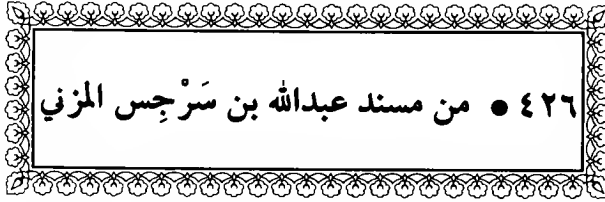 ٤٢٦ ● من مسند عبدالله بن سَرْجِس المزني